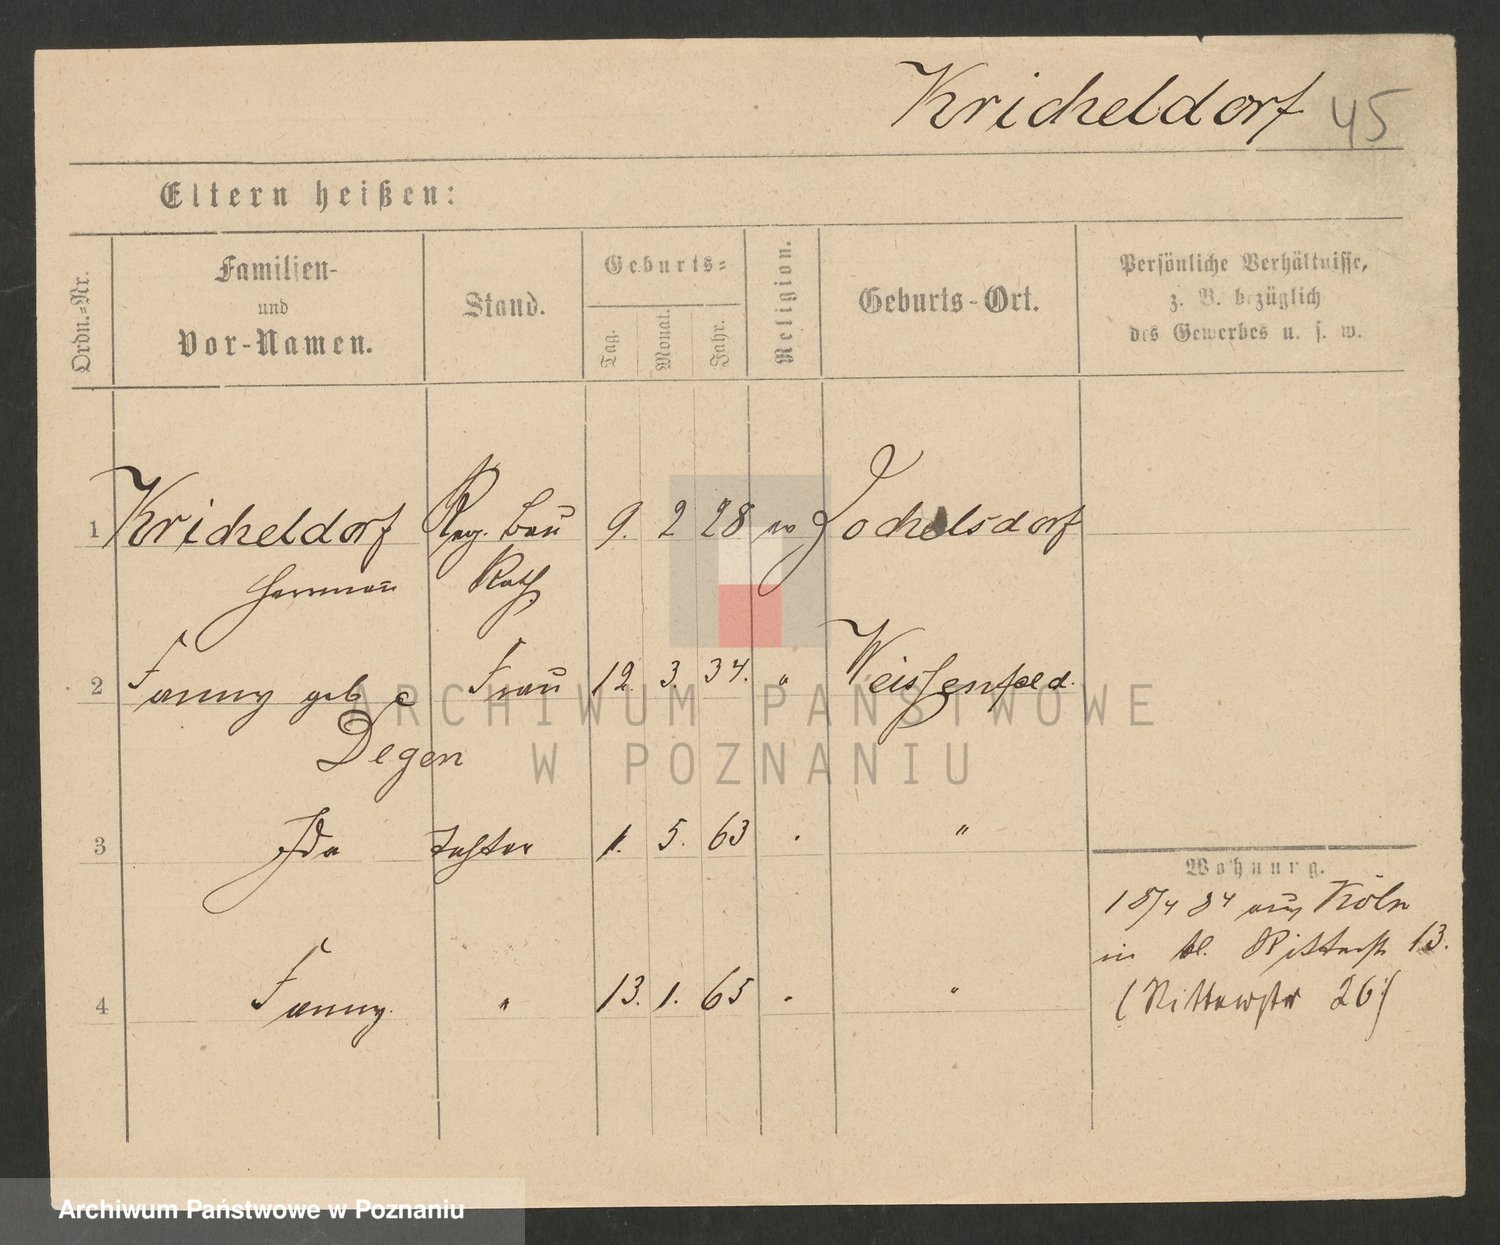 Kricheldorf 45
Eltern heißen:
Ordn.-Nr.
Familien-
und
Vor-Namen.
Stand.
Geburts-
Tag.
Monat.
Jahr.
Religion.
Geburts-Ort.
Persönliche Verhältnisse,
z. B. bezüglich
des Gewerbes u. s. w.
1 Kricheldorf Reg. Bau 9. 2 28 ev Jochelsdorf
Herrmann Rath
2 Fanny geb Frau 12. 3. 34. " Weissenfeld.
Degen
3 Ida Tochter 1. 5. 63 "
Wohnung.
18/4 84 aus Köln
in kl. Ritterstr 13.
4 Fanny. " 13. 1. 65 "
(Ritterstr 26)
ARCHIWUM PAŃSTWOWE
W POZNANIU
Archiwum Państwowe w Poznaniu